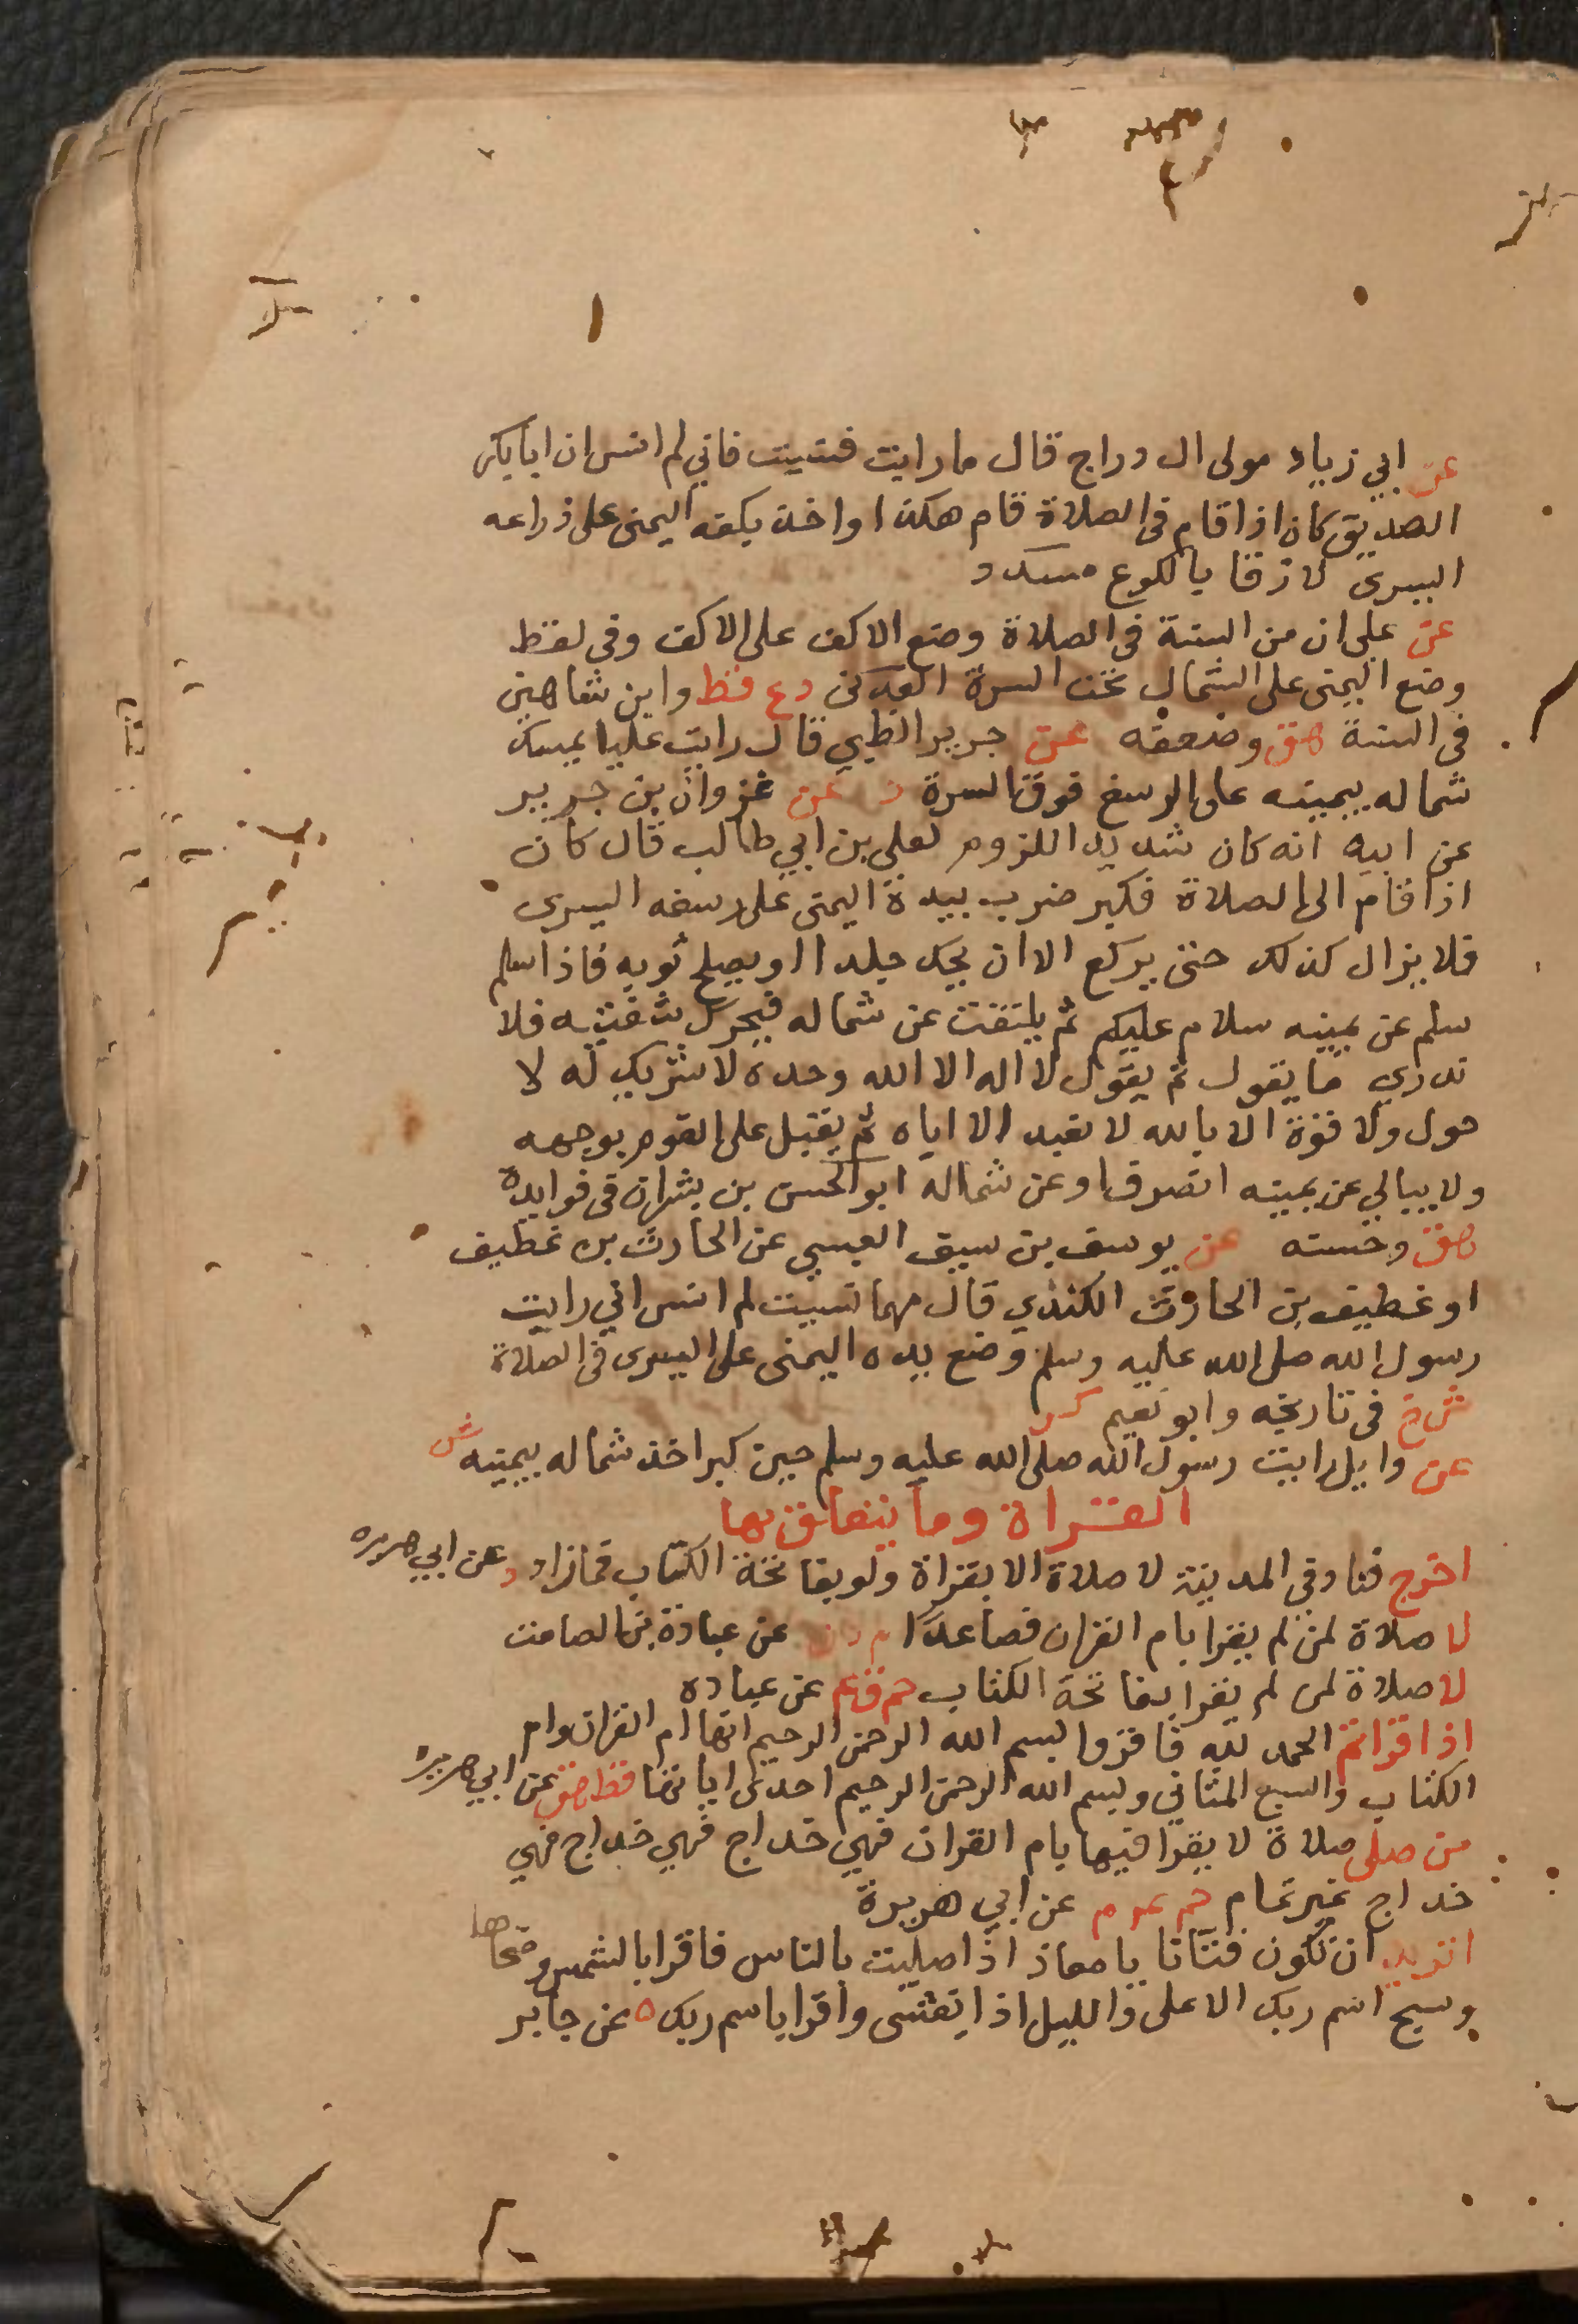 عن ابي زياد مولى ال دراج قال ما رايت فنسيت فاني لم انس ان ابا بكر
الصديق كان اذا قام في الصلاة قام هكذا واخذ بكفه اليمنى على ذراعه
اليسرى لازقا بالكوع مسدد
عن على ان من السنة في الصلاة وضع الاكف على الاكف وفي لفظ
وضع اليمنى على الشمال تحت السرة العدني د ع قط وابن شاهين
في السنة هق وضعفه عن جرير الضبي قال رايت عليا يمسك
شماله بيمينه على الرسغ فوق السرة د عن غزوان بن جرير
عن ابيه انه كان شديد اللزوم لعلي بن ابي طالب قال كان
اذا قام الى الصلاة فكبر ضرب بيده اليمنى على رسغه اليسرى
فلا يزال كذلك حتى يركع الا ان يحك جلدا او يصلح ثوبه فاذا سلم
سلم عن يمينه سلام عليكم ثم يلتفت عن شماله فيحرك شفتيه فلا
ندري ما يقول ثم يقول لا اله الا الله وحده لا شريك له لا
حول ولا قوة الا بالله لا نعبد الا اياه ثم يقبل على القوم بوجهه
ولا يبالي عن يمينه انصرف او عن شماله ابو الحسن بن بشران في فوايده
هق وحسنه عن يوسف بن سيف العبسي عن الحارث بن غطيف
او غطيف بن الحارث الكندي قال مهما نسيت لم انس اني رايت
رسول الله صلى الله عليه وسلم وضع يده اليمنى على اليسرى في الصلاة
ش خ في تاريخه وابو نعيم كر
عن وايل رايت رسول الله صلى الله عليه وسلم حين كبر اخذ شماله بيمينه ش
القراة وما يتعلق بها
اخرج فناد في المدينة لا صلاة الا بقراة ولو بفاتحة الكتاب فما زاد د عن ابي هريره
لا صلاة لمن لم يقرا بام القران فصاعدا م د ن عن عبادة بن الصامت
لا صلاة لمن لم يقرا بفاتحة الكتاب حم ق عم عن عباده
اذا قراتم الحمد لله فاقروا بسم الله الرحمن الرحيم انها ام القران وام
الكتاب والسبع المثاني وبسم الله الرحمن الرحيم احدى اياتها قط هق عن ابي هريره
من صلى صلاة لا يقرا فيها بام القران فهي خداج فهي خداج فهي
خداج غير تمام حم عم م عن ابي هريرة
اتريد ان تكون فتانا يا معاذ اذا صليت بالناس فاقرا بالشمس وضحاها
وسبح اسم ربك الاعلى والليل اذا يغشى واقرا باسم ربك ه عن جابر